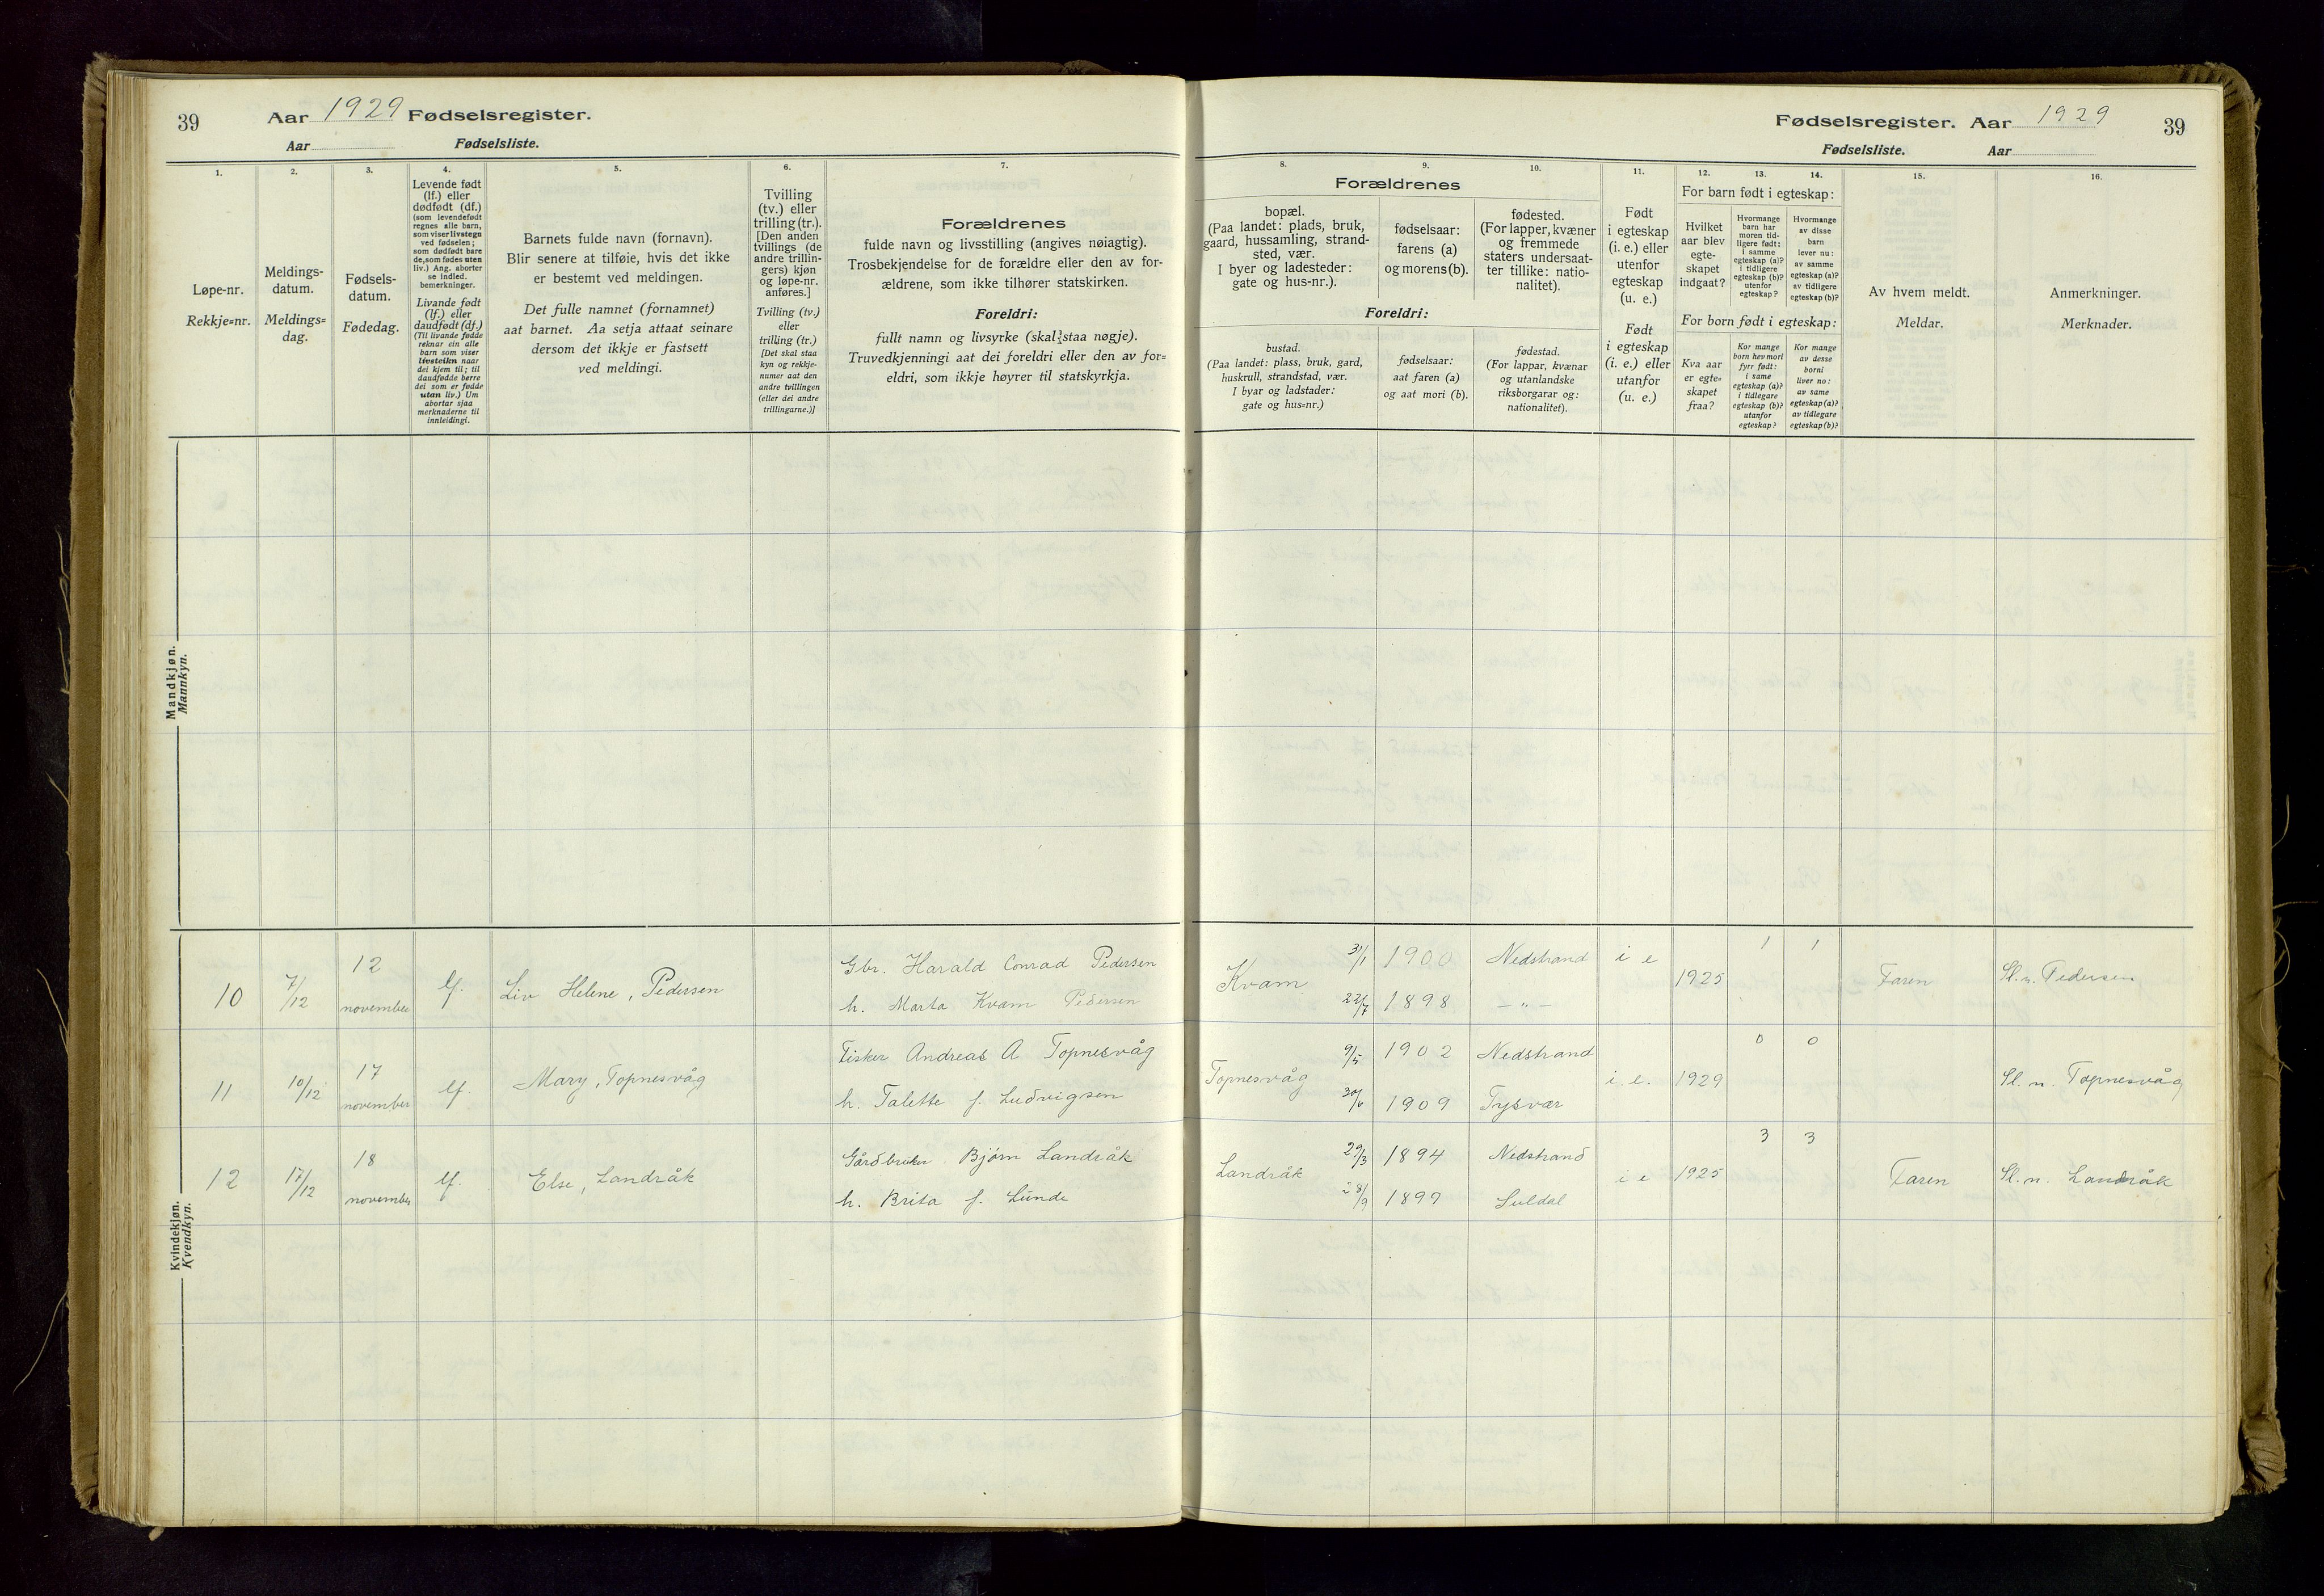 39
Aar 1929 Fødselsregister.
Aar Fødselsliste.
1.
Løpe-nr.
Rekkje=nr.
2.
Meldings-
datum.
Meldings=
dag.
3.
Fødsels-
datum.
Fødedag.
4.
Levende født
(lf.) eller
dødfødt (df.)
(som levendefødt
regnes alle barn,
som viser livstegn
ved fødselen;
som dødfødt bare
de, som fødes uten
liv.) Ang. aborter
se indled.
bemerkninger.
Livande født
(lf.) eller
daudfødt (df.)
(Til livande fødde
reknar ein alle
barn som viser
livsteikn naar
dei kjem til; til
daudfødde berre
dei som er fødde
utan liv.) Um
abortar sjaa
merknaderne til
innleidingi.
5.
Barnets fulde navn (fornavn).
Blir senere at tilføie, hvis det ikke
er bestemt ved meldingen.
Det fulle namnet (fornamnet)
aat barnet. Aa setja attaat seinare
dersom det ikkje er fastsett
ved meldingi.
6.
Tvilling
(tv.) eller
trilling (tr.).
[Den anden
tvillings (de
andre trillin-
gers) kjøn
og løpe-nr.
anføres.]
Tvilling (tv.)
eller
trilling (tr.)
[Det skal staa
kyn og rekkje-
numer aat den
andre tvillingen
(eller dei andre
trillingarne.)]
7.
Forældrenes
fulde navn og livsstilling (angives nøiagtig).
Trosbekjendelse for de forældre eller den av for-
ældrene, som ikke tilhører statskirken.
Foreldri:
fullt namn og livsyrke (skal staa nøgje).
Truvedkjenningi aat dei foreldri eller den av for=
eldri, som ikkje høyrer til statskyrkja.
Mandkjøn.
Mannkyn.
Kvindekjøn.
Kvendkyn.
10
7/12
12
november
lf.
Liv Helene, Pedersen
Gbr. Harald Conrad Pedersen
h. Marta Kvam Pedersen
11
10/12
17
november
lf.
Mary, Topnesvåg
Fisker Andreas A Topnesvåg
h. Talette f. Ludvigsen
12
17/12
18
november
lf.
Else, Landråk
Gårdbruker Bjørn Landråk
h. Brita f. Lunde
Fødselsregister. Aar 1929
39
Fødselsliste. Aar
8.
9.
10.
Forældrenes
bopæl.
(Paa landet: plads, bruk,
gaard, hussamling, strand-
sted, vær.
I byer og ladesteder:
gate og hus-nr.).
fødselsaar:
farens (a)
og morens (b).
fødested.
(For lapper, kvæner
og fremmede
staters undersaat-
ter tillike: natio-
nalitet).
Foreldri:
bustad.
(Paa landet: plass, bruk, gard,
huskrull, strandstad, vær.
I byar og ladstader:
gate og hus=nr.)
fødselsaar:
aat faren (a)
og aat mori (b).
fødestad.
(For lappar, kvænar
og utanlandske
riksborgarar og:
nationalitet).
11.
Født
i egteskap
(i. e.) eller
utenfor
egteskap
(u. e.)
Født
i egteskap
(i. e.) eller
utanfor
(u. e.)
12.
13.
14.
For barn født i egteskap:
Hvilket
aar blev
egte-
skapet
indgaat?
Hvormange
barn har
moren tid-
ligere født:
i samme
egteskap (a)?
i tidligere
egteskap (b)?
utenfor
egteskap?
Hvormange
av disse
barn
lever nu:
av samme
egteskap (a)?
av tidligere
egteskap (b)?
For born født i egteskap:
Kva aar
er egte=
skapet
fraa?
Kor mange
born hev mori
fyrr født:
i same
egteskap (a)?
i tidlegare
egteskap (b)?
utanfor
egteskap?
Kor mange
av desse
borni
liver no:
av same
egteskap (a)?
av tidlegare
egteskap (b)?
15.
Av hvem meldt.
Meldar.
16.
Anmerkninger.
Merknader.
Kvam
31/1 1900 Nedstrand
22/7 1898 — „ —
i e
1925
1 1
Faren
Sl. n. Pedersen
Topnesvåg
9/5 1902 Nedstrand
30/6 1909 Tysvær
i. e.
1929
0 0
Sl. n. Topnesvåg
Landråk
29/3 1894 Nedstrand
28/9 1899 Suldal
i e
1925
3 3
Faren
Sl. n. Landråk